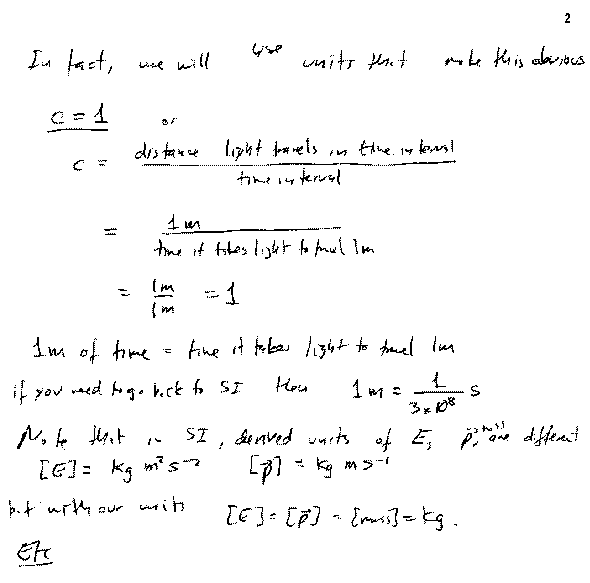 2
In fact, we will use units that make this obvious
c = 1 or
c = distance light travels in time interval / time interval
= 1m / time it takes light to travel 1m
= 1m / 1m = 1
1m of time = time it takes light to travel 1m
if you need to go back to SI then 1m = 1 / 3×10⁸ s
Note that in SI, derived units of E, p⃗, mass are different
[E] = kg m² s⁻² [p⃗] = kg m s⁻¹
but with our units [E] = [p⃗] = [mass] = kg.
Etc